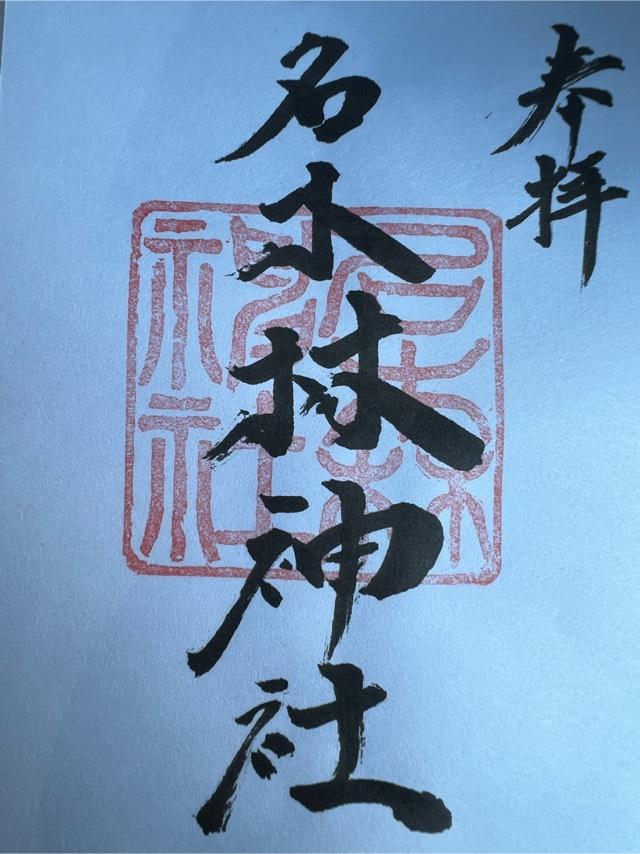 奉拝
名木林神社
名木林
神社